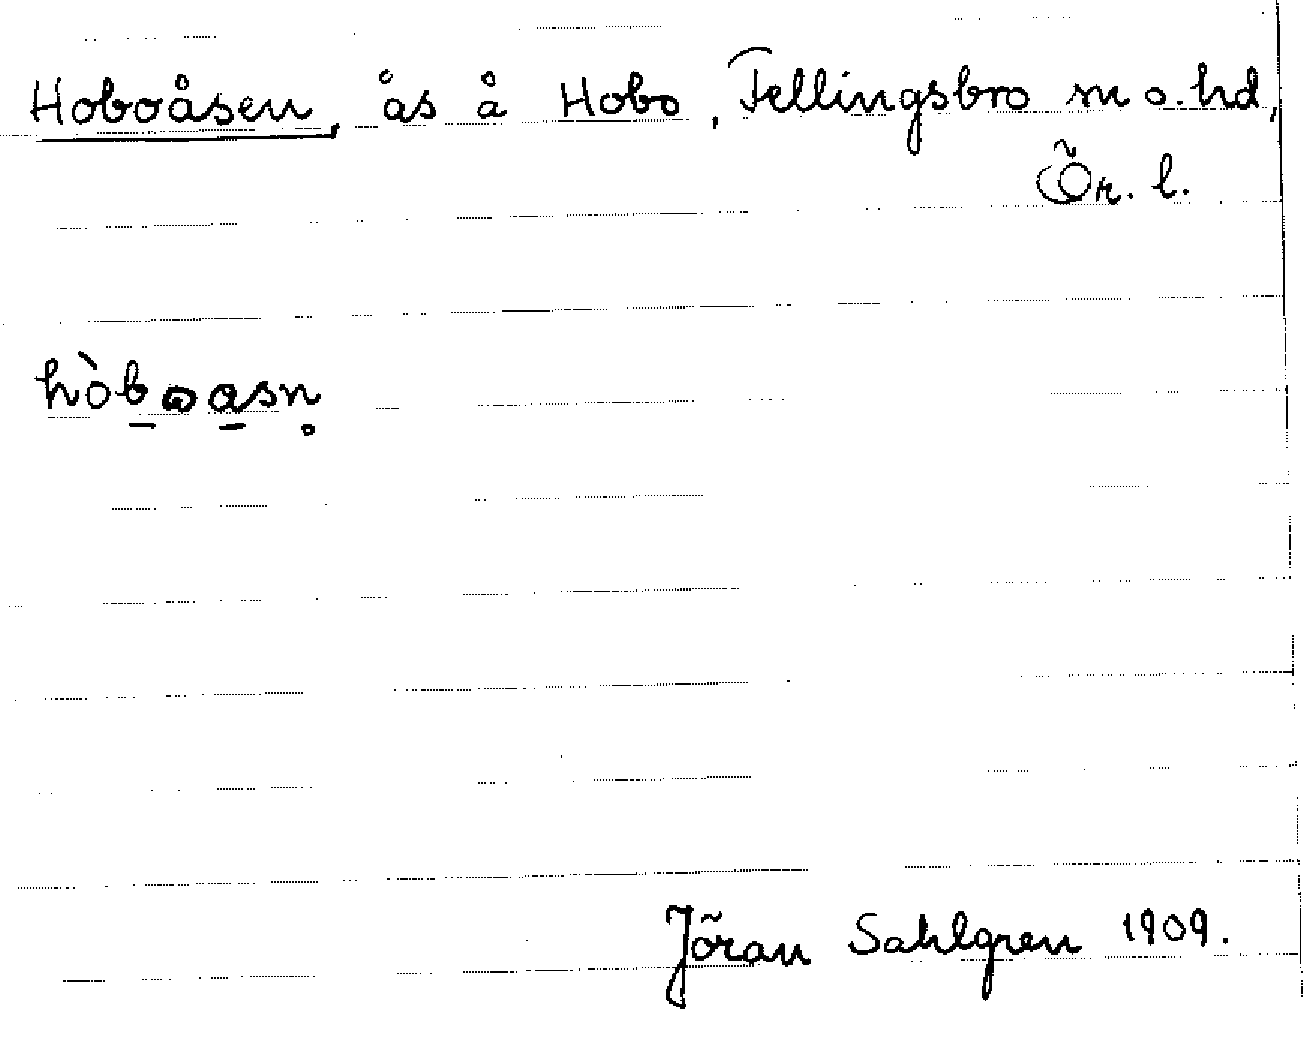 Hoboåsen, ås å Hobo, Fellingsbro sn o. hd,
Ör. l.
hòbωasn̥
Jöran Sahlgren 1909.